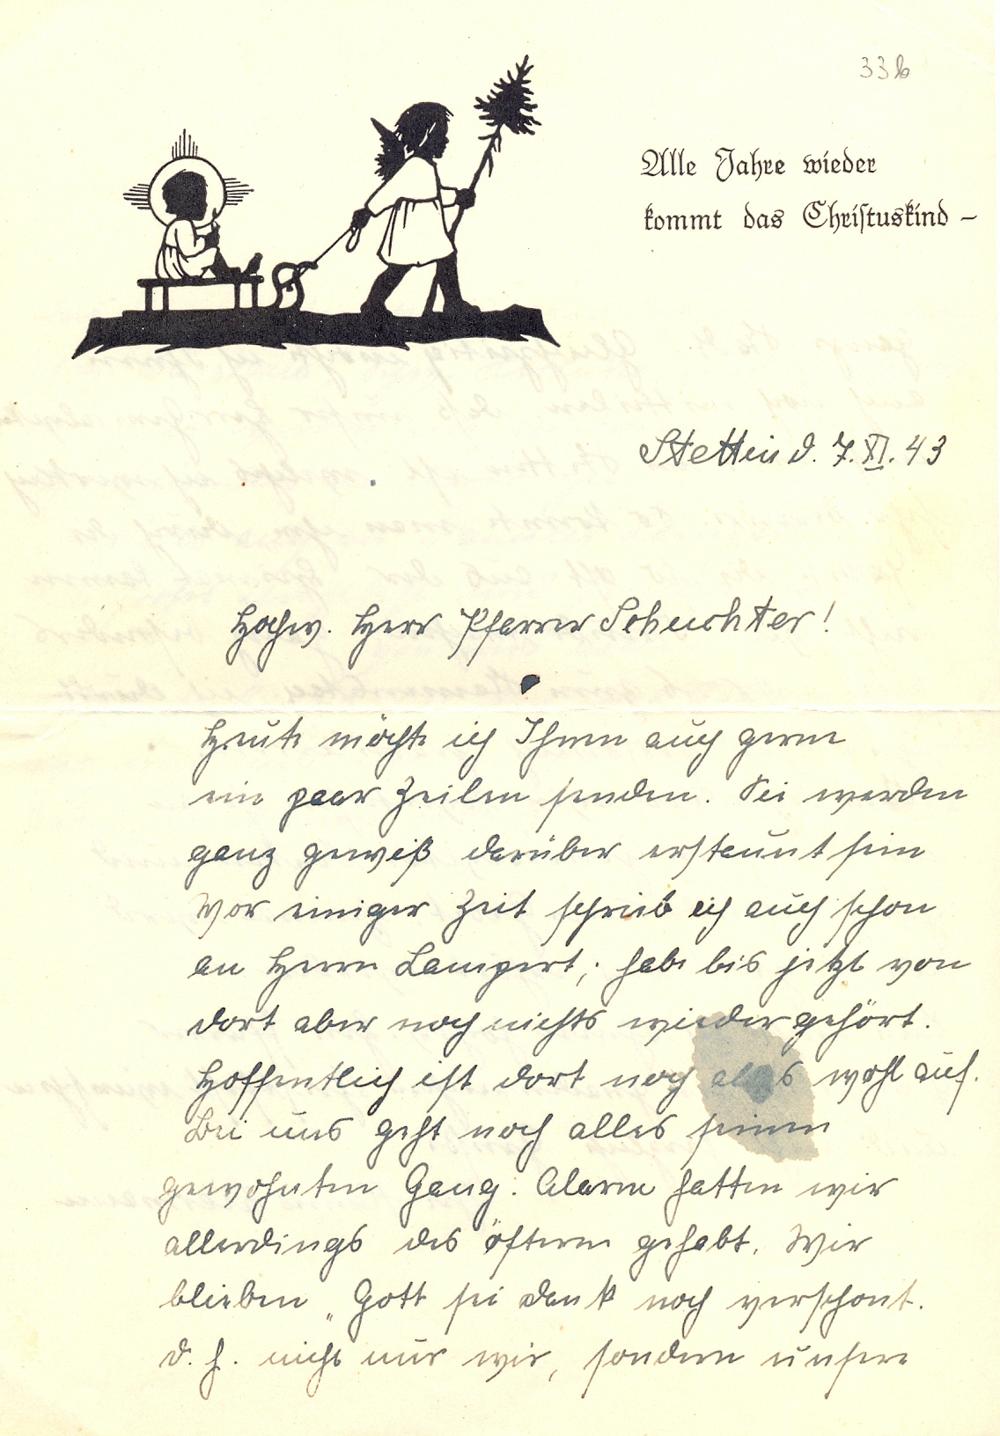 33b
Alle Jahre wieder
kommt das Christuskind –
Stettin d. 7. XI. 43
Hochw. Herr Pfarrer Schuchter!
Heute möchte ich Ihnen auch gerne
ein paar Zeilen senden. Sei werden
ganz gewiß darüber erstaunt sein
Vor einiger Zeit schrieb ich auch schon
an Herrn Lampert; habe bis jetzt von
dort aber noch nichts wieder gehört.
Hoffentlich ist dort noch alles wohl auf.
Bei uns geht noch alles seinen
gewohnten Gang. Alarm hatten wir
allerdings des öftern gehabt. Wir
blieben „Gott sei dank noch verschont.
d. h. nicht nur wir, sondern unsere